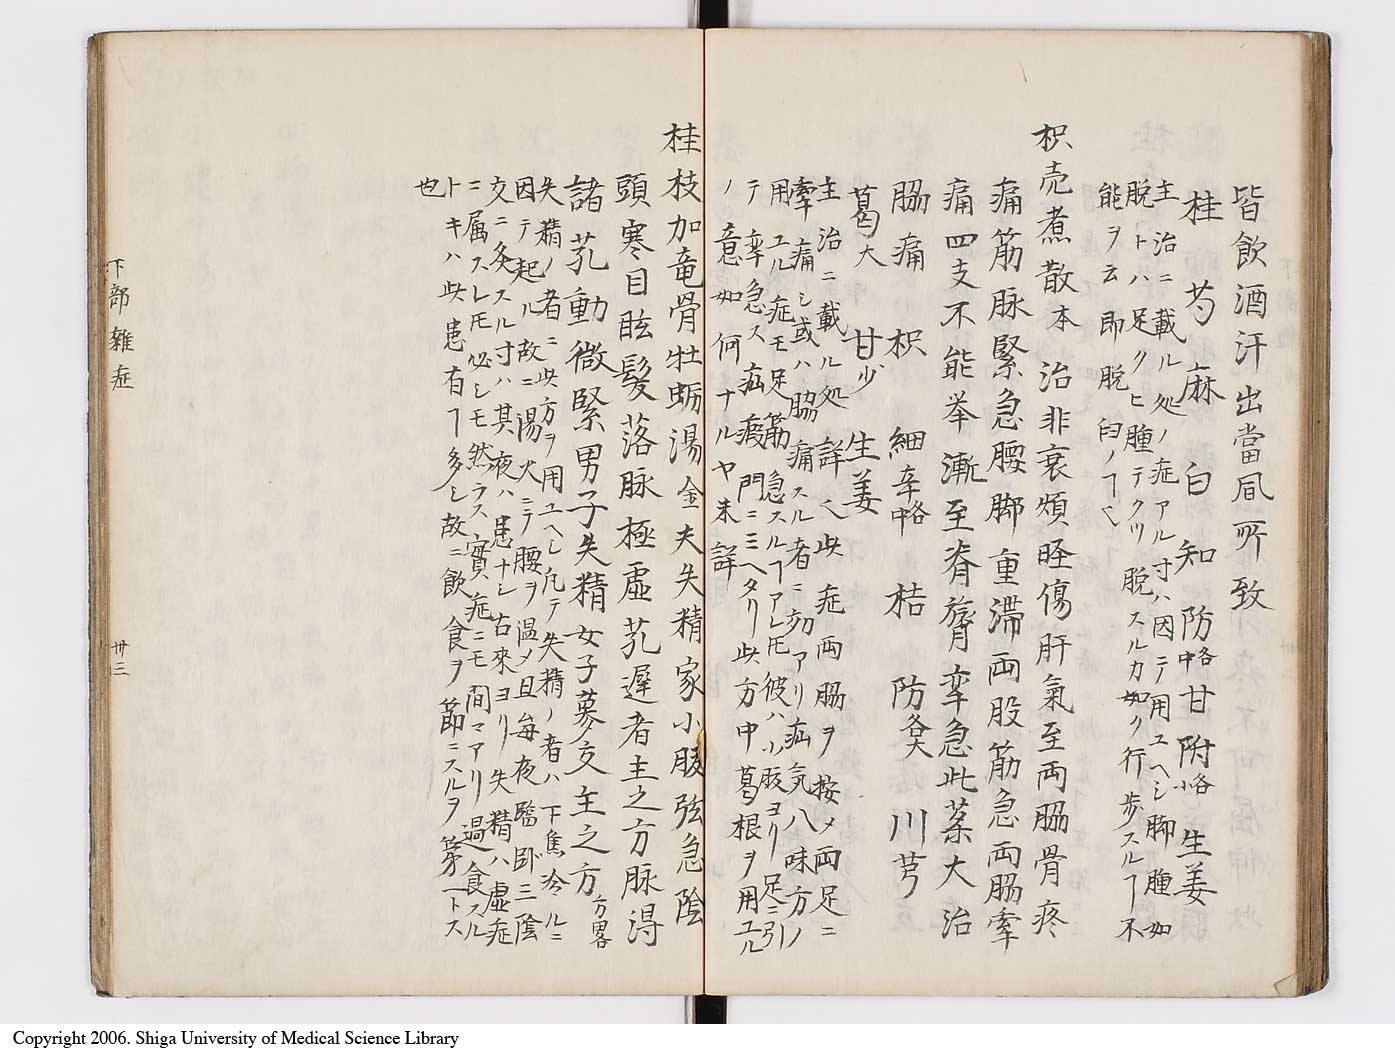 皆飲酒汗出當風所致
桂 芍 麻 白 知 防各中 甘 附各小 生姜
主治ニ載ル処ノ症アル寸ハ因テ用ユヘシ脚腫如
脱トハ足クヒ腫テクツ脱スルカ如ク行歩スルヿ不
能ヲ云即脱臼ノヿ也
枳壳煮散本 治非衰煩 傷肝氣至両脇骨疼
痛筋脉緊急腰脚重滞両股筋急両脇牽
痛四支不能举漸至脊膂挛急此薬大治
脇痛 枳 細辛各中 桔 防各大 川芎
葛大 甘少 生姜
主治ニ載ル処詳也此症両脇ヲ按メ両足ニ
牽痛シ或ハ脇痛スル者ニ功アリ疝気八味方ノ
用ユル症モ足筋急スルヿアレ𪜈彼ハ小腹ヨリ足ニ引
テ挛急ス疝瘕門ニミヘタリ此方中葛根ヲ用ユル
ノ意如何ナルヤ未詳
桂枝加竜骨牡蛎湯金 夫失精家小腹弦急陰
頭寒目眩髪落脉極虚芤遅者主之方脉得
諸芤動微緊男子失精女子夢交主之方 方畧
失精ノ者ニ此方ヲ用ユヘシ凡テ失精ノ者ハ下焦冷ルニ
因テ起ル故ニ湯火ニテ腰ヲ温メ且毎夜臨卧三陰
交ニ灸スル寸ハ其夜ハ患ナシ古來ヨリ失精ハ虚症
ニ属スレ𪜈必シモ然ラス實症ニモ間マアリ過食スル
トキハ此患有ヿ多シ故ニ飲食ヲ節ニスルヲ第一トス
也
下部雜症
卅三
Copyright 2006. Shiga University of Medical Science Library